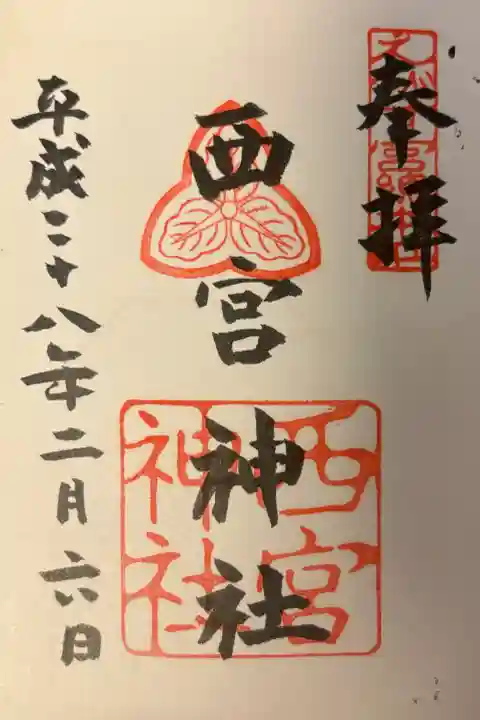 奉拝
西宮神社
西宮神社
平成二十八年二月六日